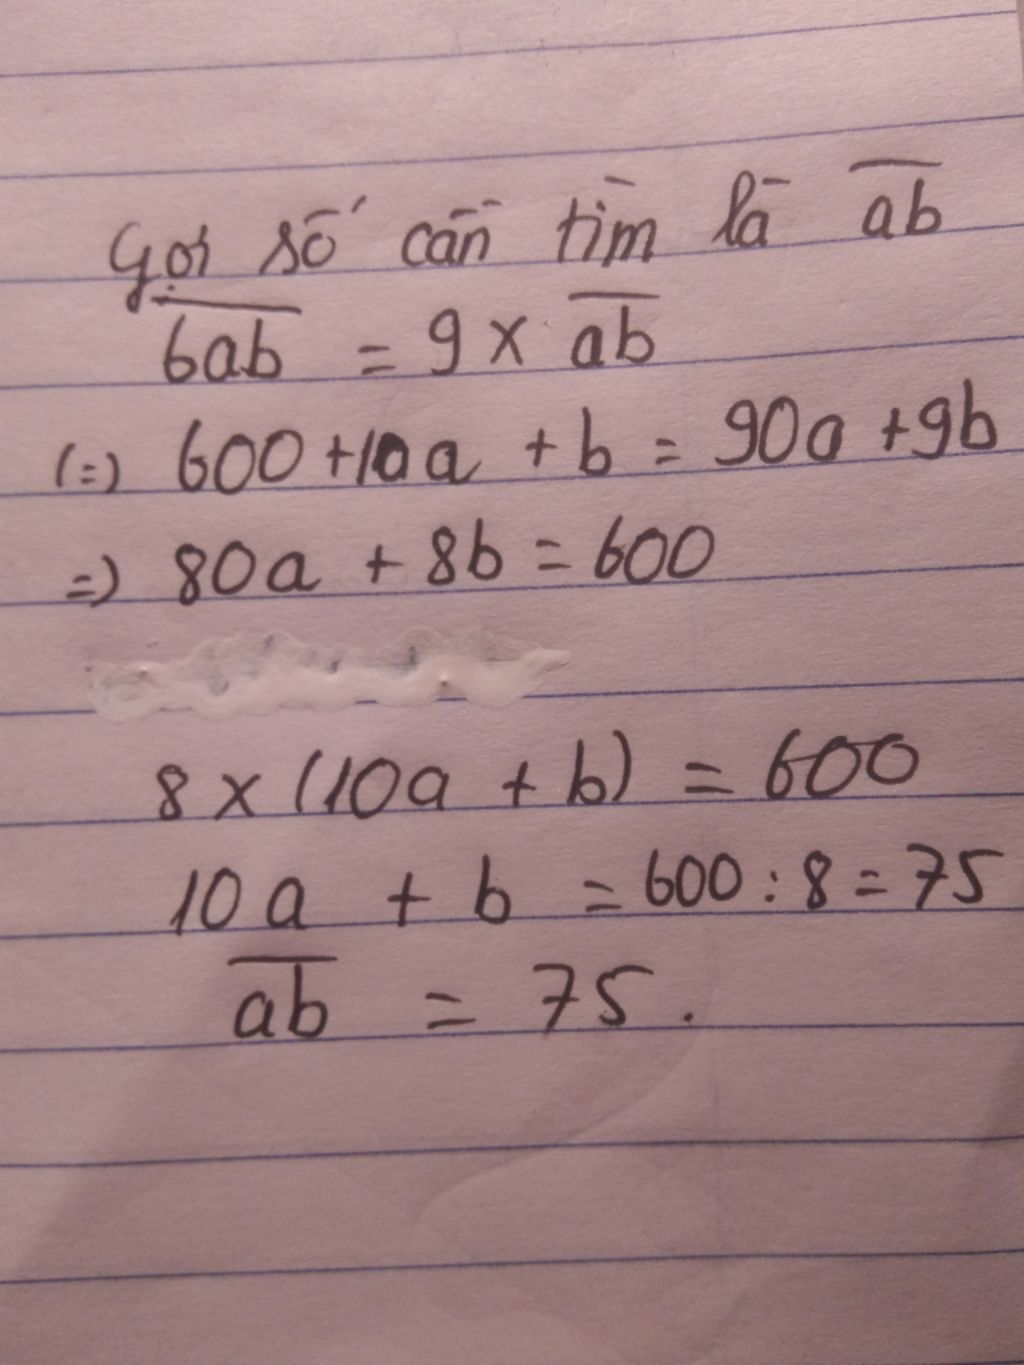 Gọi số cần tìm là a̅b̅
6̅a̅b̅ = 9 x a̅b̅
(=) 600 + 10a + b = 90a + 9b
=) 80a + 8b = 600
8 x (10a + b) = 600
10a + b = 600 : 8 = 75
a̅b̅ = 75.